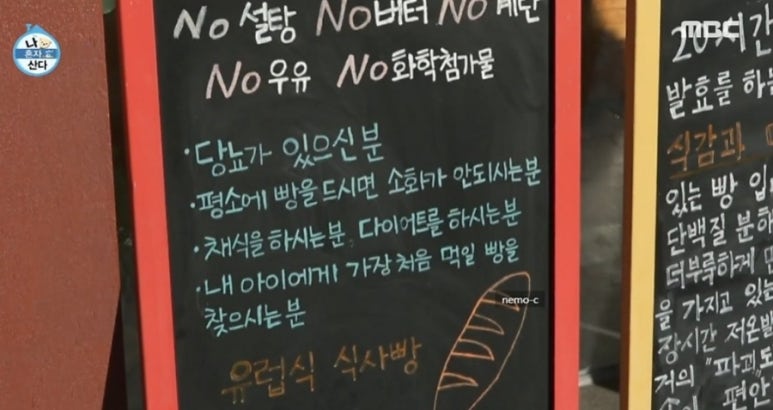 나 혼자 산다
MBC
No 설탕 No버터 No 계란
No우유 No화학첨가물
·당뇨가 있으신분
·평소에 빵을 드시면 소화가 안되시는분
·채식을 하시는분, 다이어트를 하시는분
·내 아이에게 가장 처음 먹일 빵을
찾으시는분
nemo-c
유럽식 식사빵
발효를 하는
식감과
있는 빵 입
단백질 분하
더부룩하게
을 가지고 있는
장시간 저온발
저의 "파괴도
편안